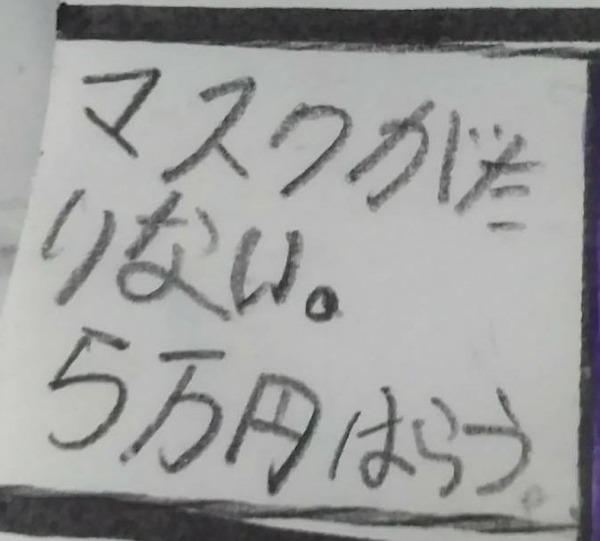 マスクがた
りない。
5万円はらう。